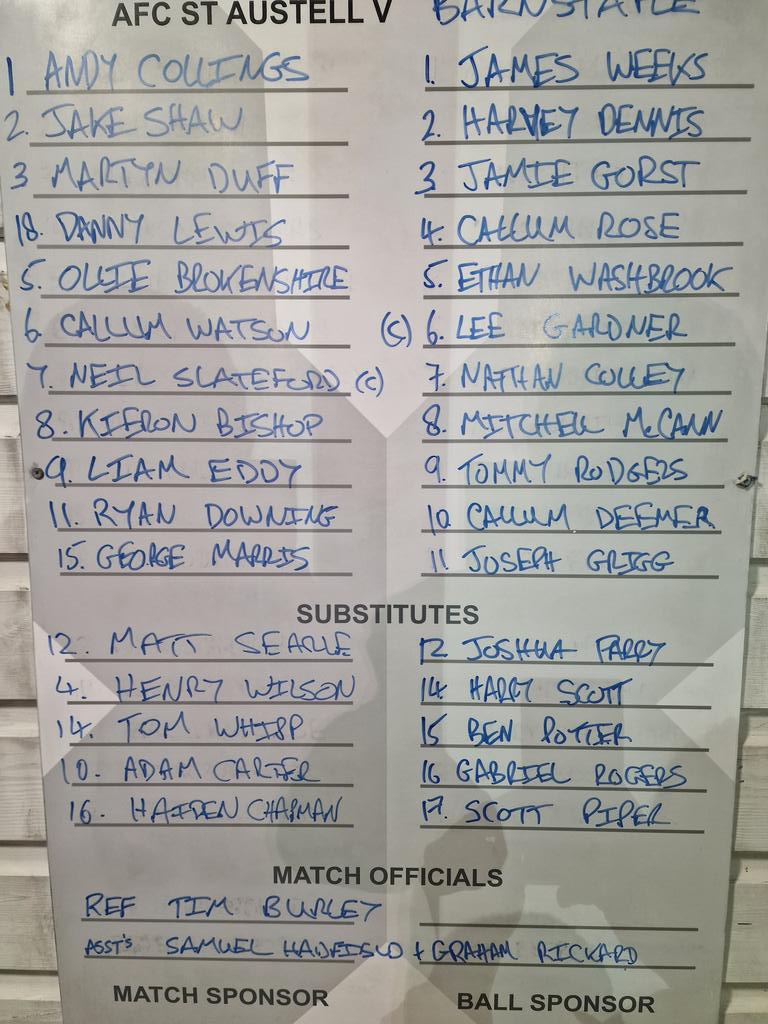 AFC ST AUSTELL V BARNSTAPLE
1 ANDY COLLINGS
2. JAKE SHAW
3 MARTYN DUFF
18. DANNY LEWIS
5. OLLIE BROKENSHIRE
6. CALLUM WATSON
7. NEIL SLATEFORD (C)
8. KIERON BISHOP
9. LIAM EDDY
11. RYAN DOWNING
15. GEORGE MARRIS
1. JAMES WEEKS
2. HARVEY DENNIS
3 JAMIE GORST
4. CALLUM ROSE
5. ETHAN WASHBROOK
(C) 6. LEE GARDNER
7. NATHAN COLLEY
8. MITCHELL McCANN
9. TOMMY RODGERS
10 CALLUM DEEMER
11 JOSEPH GRIGG
SUBSTITUTES
12. MATT SEARLE
4. HENRY WILSON
14. TOM WHIPP
10. ADAM CARTER
16. HAIDEN CHAPMAN
12 JOSHUA PARRY
14 HARRY SCOTT
15 BEN POTTER
16 GABRIEL ROGERS
17. SCOTT PIPER
MATCH OFFICIALS
REF TIM BURLEY
ASST'S SAMUEL HADFIELD + GRAHAM RICKARD
MATCH SPONSOR
BALL SPONSOR